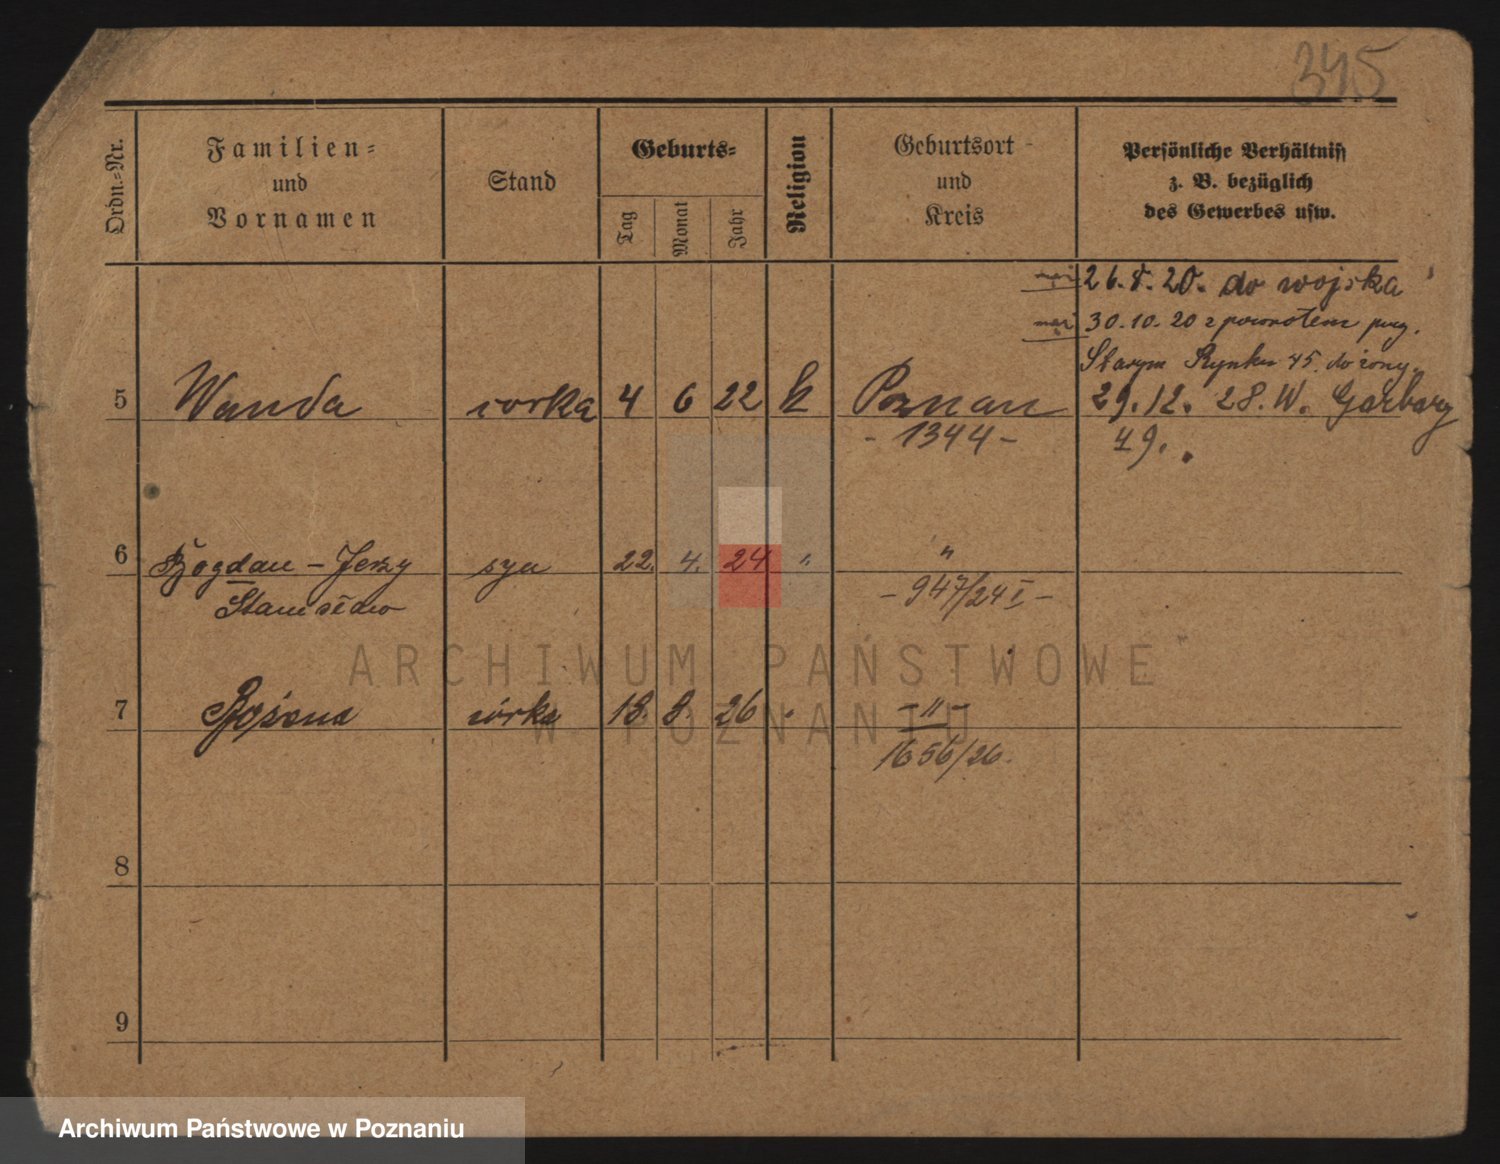 345
Ordn.-Nr.
Familien-
und
Vornamen
Stand
Geburts-
Tag
Monat
Jahr
Religion
Geburtsort
und
Kreis
Persönliche Verhältniss
z. B. bezüglich
des Gewerbes usw.
mąż 26.8.20. do wojska
mąż 30.10.20 z powrotem przy.
Starym Rynku 45. do żony
5 Wanda corka 4 6 22 k Poznan 29.12.28. W. Garbary
- 1344 - 49.
6 Bogdan - Jerzy syn 22. 4. 24 " "
Stanisław - 947/24 I -
7 Bożena córka 18. 8. 26 - " -
1656/26.
8
9
ARCHIWUM PAŃSTWOWE
W POZNANIU
Archiwum Państwowe w Poznaniu